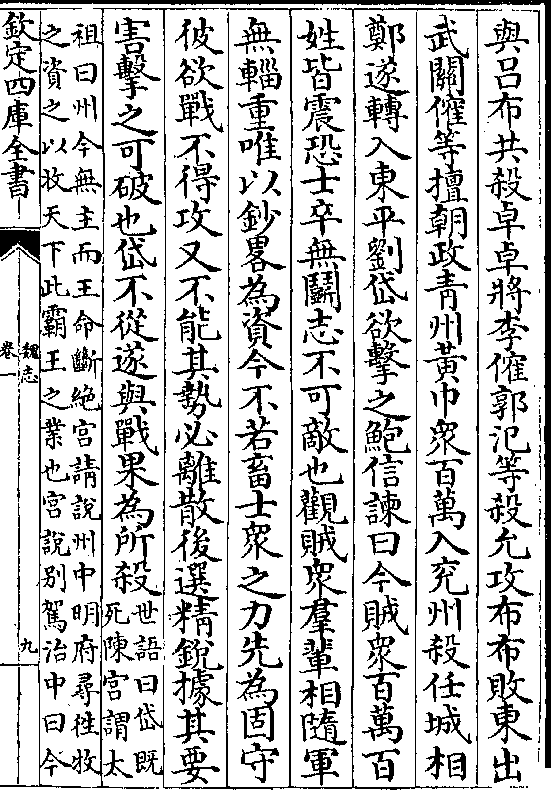 與吕布共殺卓卓將李傕郭汜等殺允攻布布敗東出
武關傕等擅朝政青州黃巾衆百萬入兖州殺任城相
鄭遂轉入東平劉岱欲擊之鮑信諫曰今賊衆百萬百
姓皆震恐士卒無鬬志不可敵也觀賊衆羣輩相隨軍
無輜重唯以鈔畧為資今不若畜士衆之力先為固守
彼欲戰不得攻又不能其勢必離散後選精銳據其要
害擊之可破也岱不從遂與戰果為所殺世語曰岱既
死陳宫謂太
祖曰州今無主而王命斷絶宫請說州中明府尋徃牧
之資之以收天下此霸王之業也宫說别駕治中曰今
欽定四庫全書
魏志
卷一
九